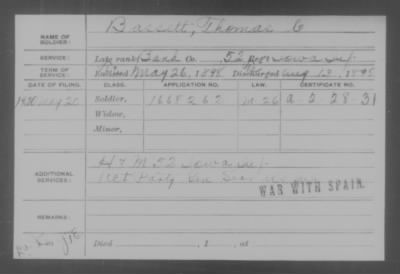 NAME OF SOLDIER: Bassett, Thomas C
SERVICE: Late rank Band Co. 52 Reg't Iowa Inf.
TERM OF SERVICE: Enlisted May 26, 1898 Discharged Aug 13, 1898
DATE OF FILING. CLASS. APPLICATION NO. LAW. CERTIFICATE NO.
1930 May 20 Soldier, 1668262 M 26 A-2-28-31
Widow,
Minor,
ADDITIONAL SERVICES: H & M 52 Iowa Inf.
WAR WITH SPAIN.
REMARKS:
Died , 1 , at